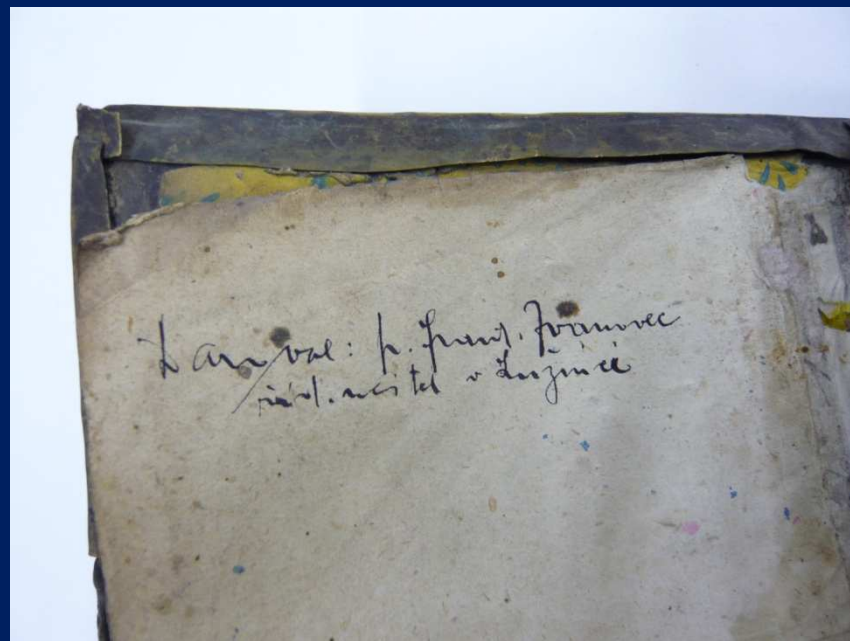 Daroval: p. Frant. Ivanovec
říd. učitel v Lužnici